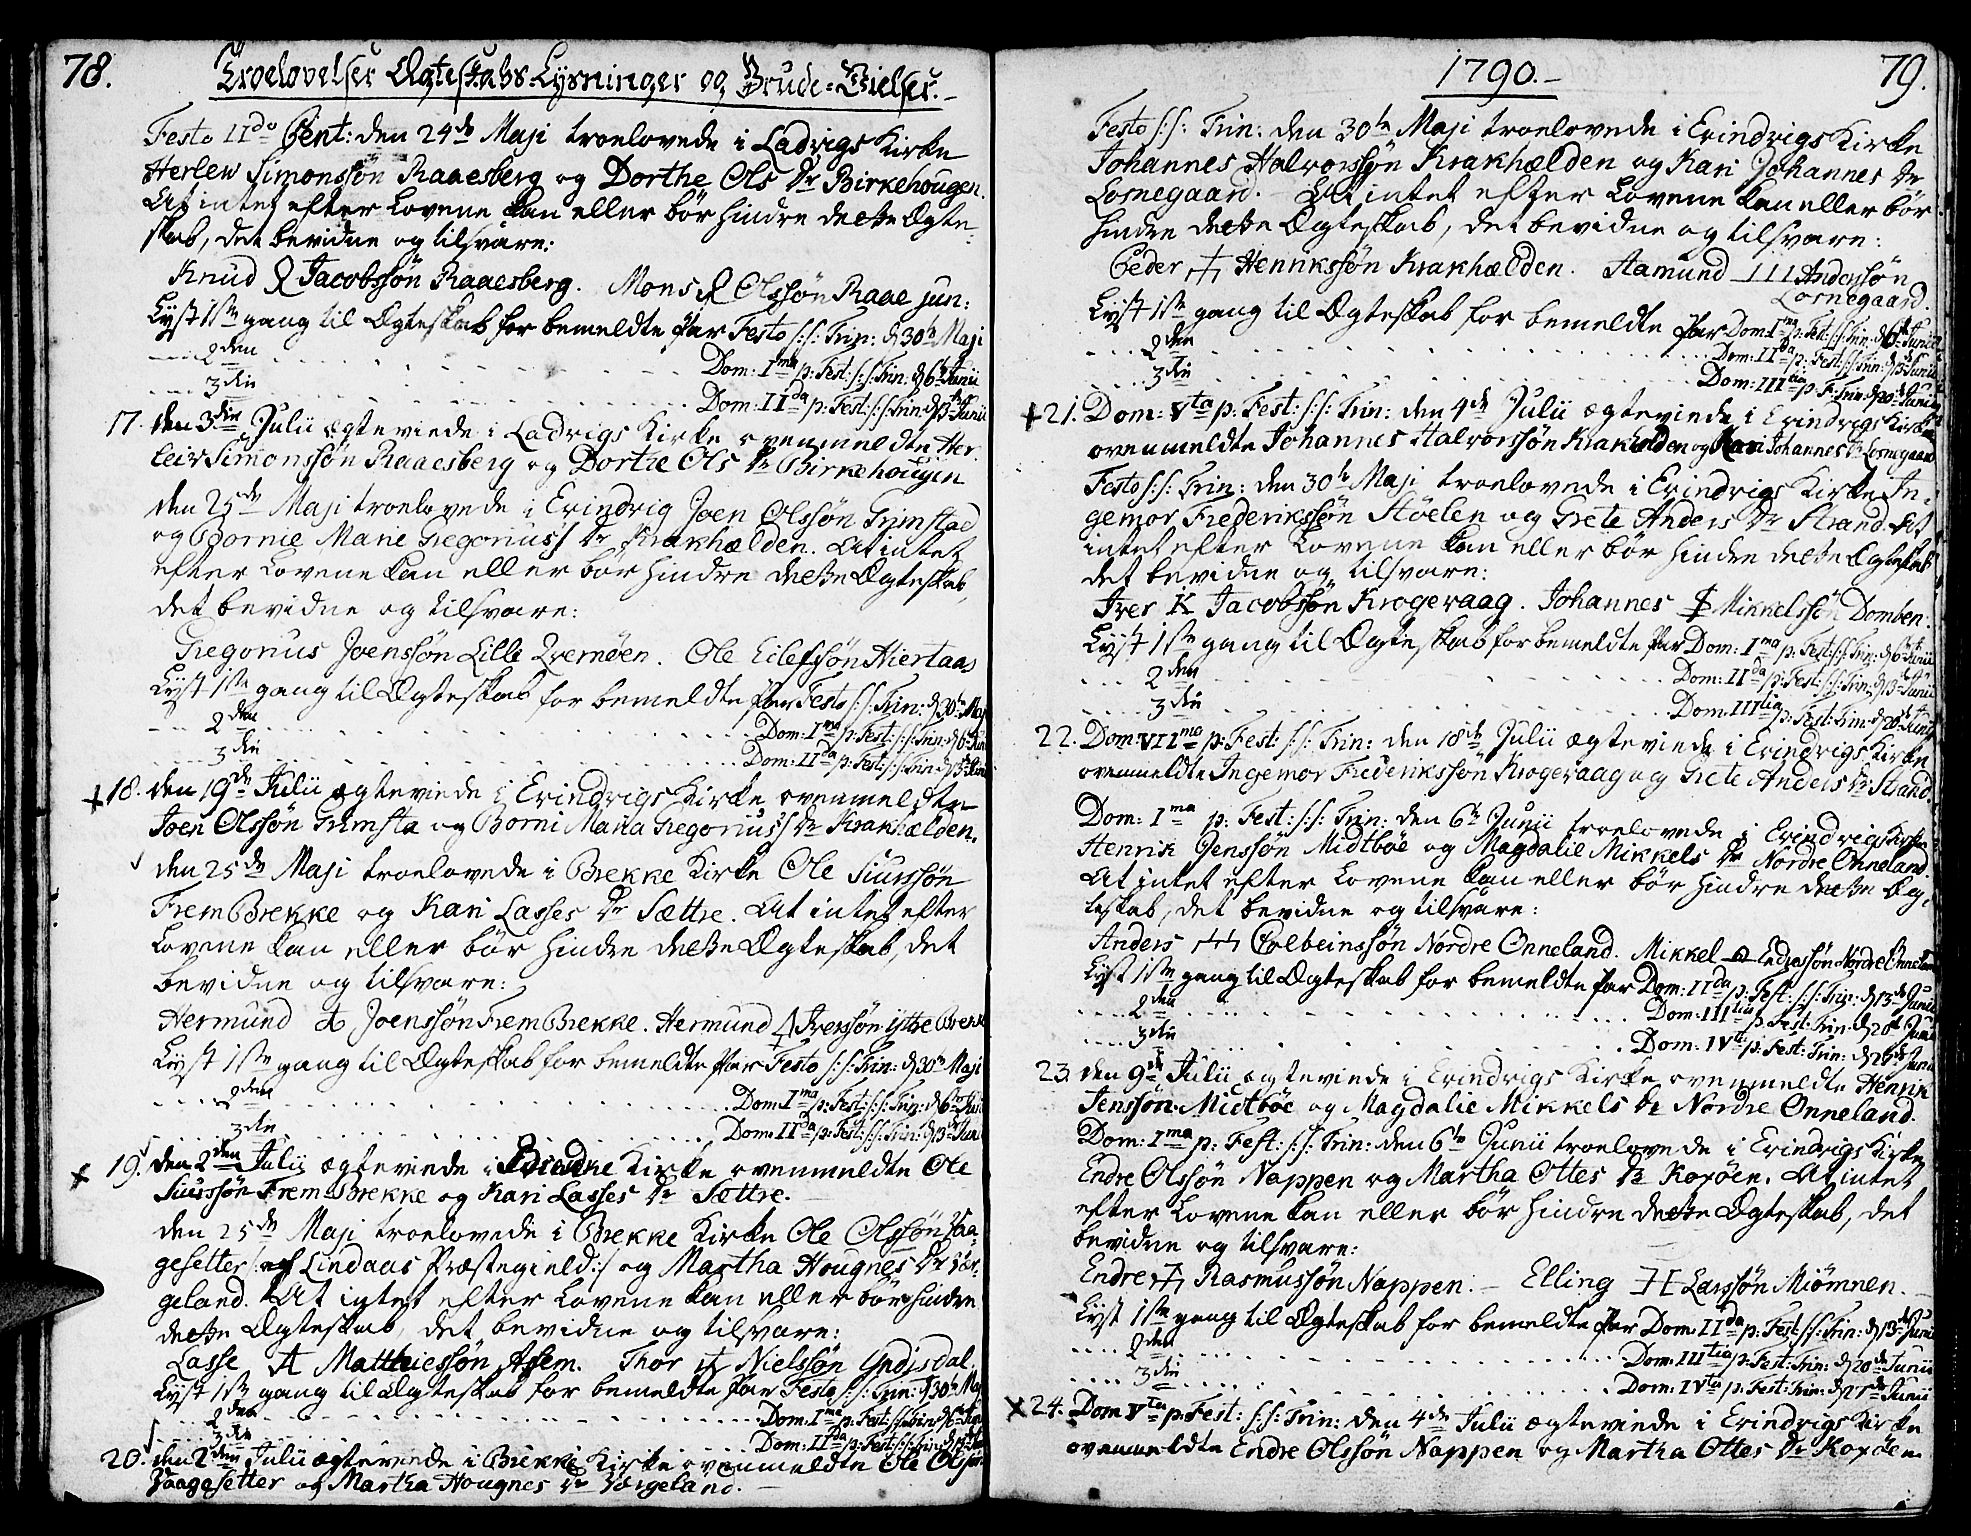 78.
Troelovelser Ægteskabs-Lysninger og Brude-Vielser.
Festo IIdo Pent: den 24de Maji troelovede i Ladvigs Kirke
Herlew Simonssøn Raaesberg og Dorthe Ols Dr Birkehougen.
At intet efter Lovene kan eller bør hindre dette Ægte-
skab, det bevidne og tilsvare:
Knud Jacobssøn Raaesberg. Mons Olssøn Raae jun:
Lyst 1ste gang til Ægteskab for bemeldte Par Festo S:S: Trin: d 30te Maji
2den Dom: Ima p: Fest: S:S: Trin: d 6te Junii
3die Dom: IIda p: Fest: S:S: Trin: d 13de Junii
17. den 3die Julii ægteviede i Ladvigs Kirke ovenmeldte Her-
leiv Simonssøn Raaesberg og Dorthe Ols Dr Birkehougen
den 25de Maji troelovede i Evindvig Joen Olssøn Grimstad
og Bornie Marie Gregorius's Dr Krakhælden. At intet
efter Lovene kan eller bør hindre dette Ægteskab,
det bevidne og tilsvare:
Gregorius Joenssøn Lille Qvernøen. Ole Eilefssøn Hiertaas
Lyst 1ste gang til Ægteskab for bemeldte Par Festo S:S: Trin: d 30te Maji
2den Dom: Ima p: Fest: S:S: Trin: d 6te Junii
3die Dom: IIda p: Fest: S:S: Trin: d 13de Junii
18. den 19de Julii ægteviede i Evindvigs Kirke ovenmeldte
Joen Olssøn Grimsta og Borni Maria Gregorius's Dr Krakhælden.
den 25de Maji troelovede i Brekke Kirke Ole Siurssøn
Frem Brekke og Kari Lasses Dr Sættre. At intet efter
Lovene kan eller bør hindre dette Ægteskab, det
bevidne og tilsvare:
Hermund Joenssøn Frem Brekke. Hermund Iverssøn ÿttre Brekke
Lyst 1ste gang til Ægteskab for bemeldte Par Festo S:S: Trin: d 30te Maji
2den Dom: Ima p: Fest: S:S: Trin: d 6te Junii
3die Dom: IIda p: Fest: S:S: Trin: d 13de Junii
19. den 2den Julii ægteviede i Brekke Kirke ovenmeldte Ole
Siurssøn Frem-Brekke og Kari Lasses Dr Sættre.
den 25de Maji troelovede i Brekke Kirke Ole Olssøn Vaa-
gesetter /: af Lindaas Præstegield :/ og Martha Hougnes Dr Vør-
geland. At intet efter Lovene kan eller bør hindre
dette Ægteskab, det bevidne og tilsvare:
Lasse Matthiessøn Asem. Thor Nielssøn Yndisdal.
Lyst 1ste gang til Ægteskab for bemeldte Par Festo S:S: Trin: d 30te Maji
2den Dom: Ima p: Fest: S:S: Trin: d 6te Junii
3die Dom: IIda p: Fest: S:S: Trin: d 13de Junii
20. den 2den Julii ægteviede i Brekke Kirke ovenmeldte Ole Olssøn
Vaagesetter og Martha Hougnes Dr Vørgeland.
1790.
79.
Festo S:S: Trin: den 30te Maji troelovede i Evindvigs Kirke
Johannes Halvorssøn Krakhælden og Kari Johannes Dr
Losnegaard. At intet efter Lovene kan eller bør
hindre dette Ægteskab, det bevidne og tilsvare:
Peder Henrikssøn Krakhælden. Aamund Anderssøn
Losnegaard.
Lyst 1ste gang til Ægteskab for bemeldte Par Dom: Ima p: Fest: S:S: Trin: d 6te Junii
2den Dom: IIda p: Fest: S:S: Trin: d 13de Junii
3die Dom: IIItia p: F: Trin: d 20de Junii
21. Dom: Vta p: Fest: S:S: Trin: den 4de Julii ægteviede i Evindvigs Kirke
ovenmeldte Johannes Halvorssøn Krakhælden og Kari Johannes Dr Losnegaard
Festo S:S: Trin: den 30te Maji troelovede i Evindvigs Kirke In-
gemor Frederikssøn Støelen og Grete Anders Dr Strand. At
intet efter Lovene kan eller bør hindre dette Ægteskab
det bevidne og tilsvare:
Iver Jacobssøn Krogevaag. Johannes Mikkelssøn Domben.
Lyst 1ste gang til Ægteskab for bemeldte Par Dom: Ima p: Fest: S:S: Trin: d 6te Junii
2den Dom: IIda p: Fest: S:S: Trin: d 13de Junii
3die Dom: IIItia p: Fest: Trin: d 20de Junii
22. Dom: VIIma p: Fest: S:S: Trin: den 18de Julii ægteviede i Evindvigs Kirke
ovenmeldte Ingemor Frederikssøn Krogevaag og Grete Anders Dr Strand.
Dom: Ima p: Fest: S:S: Trin: den 6te Junii troelovede i Evindvigs Kirke
Henrik Jenssøn Midtbøe og Magdalie Mikkels Dr Nordre Onneland.
At intet efter Lovene kan eller bør hindre dette Æg-
teskab, det bevidne og tilsvare:
Anders Colbeinssøn Nordre Onneland. Mikkel Endressøn Nordre Onneland
Lyst 1ste gang til Ægteskab for bemeldte Par Dom: IIda p: Fest: S:S: Trin: d 13de Junii
2den Dom: IIItia p: Fest: Trin: d 20de Junii
3die Dom: IVta p: Fest: Trin: d 27de Junii
23. den 9de Julii ægteviede i Evindvigs Kirke ovenmeldte Henrik
Jenssøn Midtbøe og Magdalie Mikkels Dr Nordre Onneland.
Dom: Ima p: Fest: S:S: Trin: den 6te Junii troelovede i Evindvigs Kirke
Endre Olssøn Nappen og Martha Ottes Dr Koxøen. At intet
efter Lovene kan eller bør hindre dette Ægteskab, det
bevidne og tilsvare:
Endre Rasmussøn Nappen. Elling Larssøn Miømnen.
Lyst 1ste gang til Ægteskab for bemeldte Par Dom: IIda p: Fest: S:S: Trin: d 13de Junii
2den Dom: IIItia p: Fest: Trin: d 20de Junii
3die Dom: IVta p: Fest: Trin: d 27de Junii
24. Dom Vta p: Fest: S:S: Trin: den 4de Julii ægteviede i Evindvigs Kirke
ovenmeldte Endre Olssøn Nappen og Martha Ottes Dr Koxøen